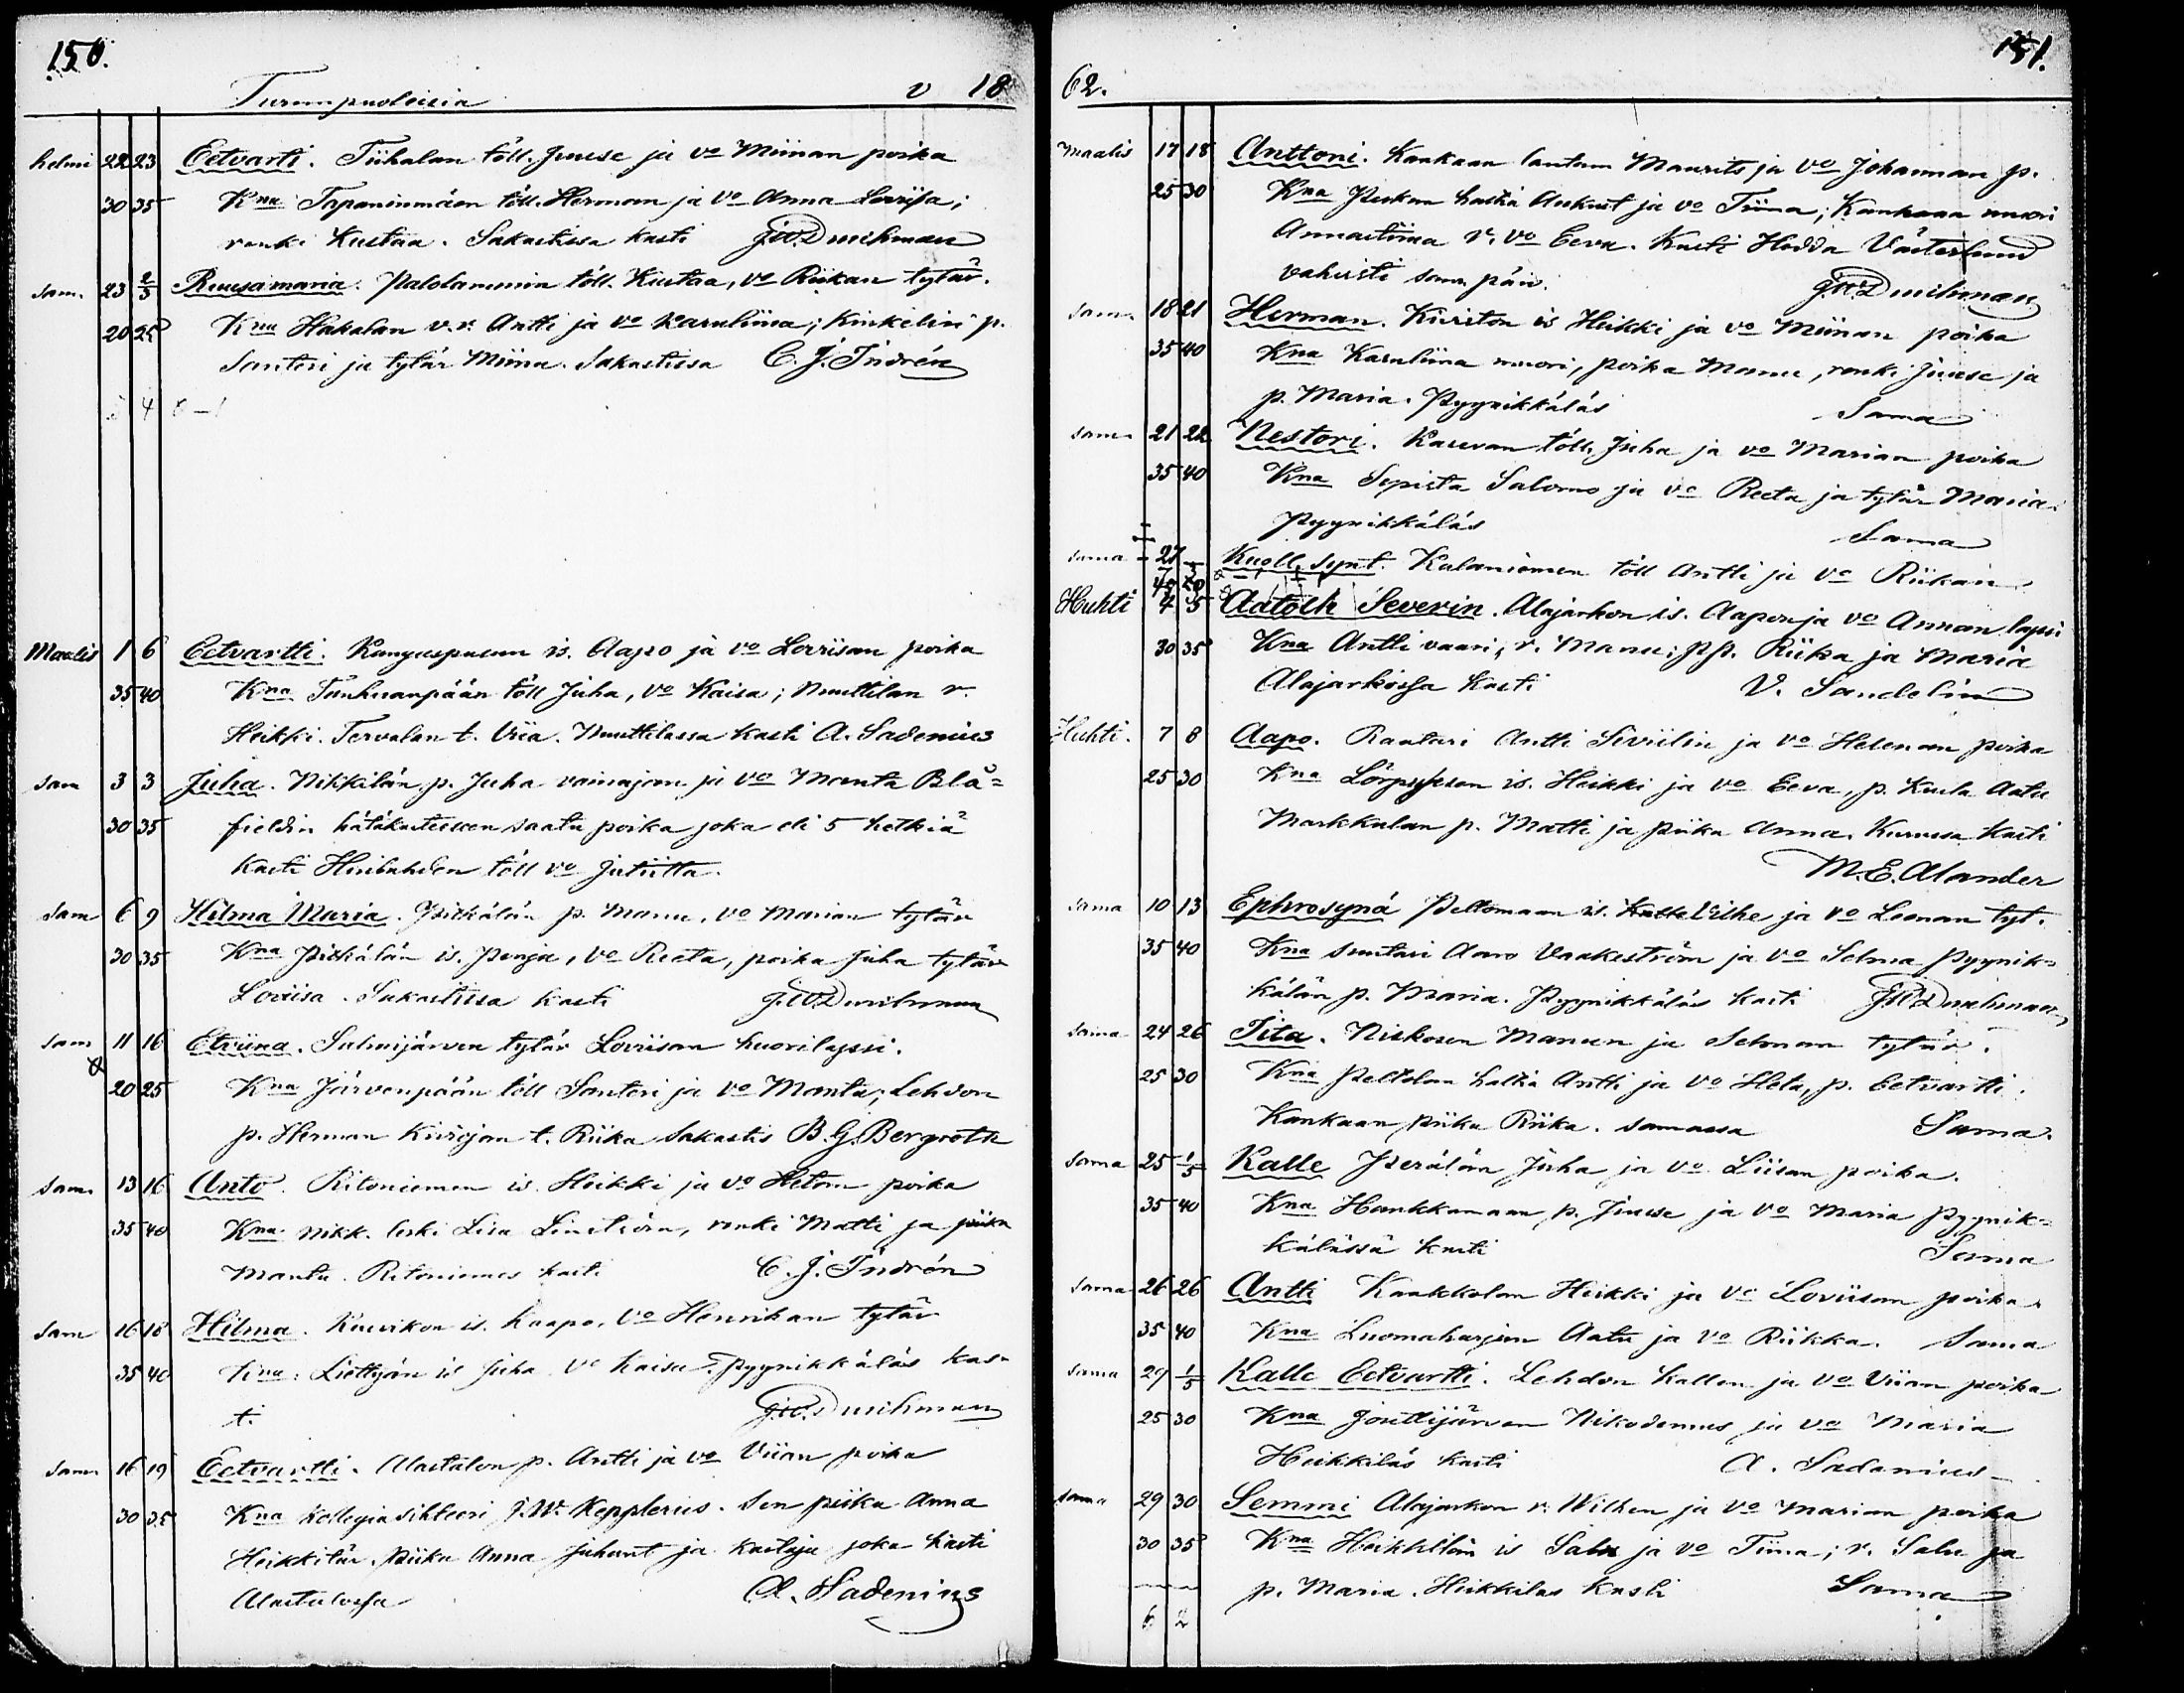 150.
Turunpuoleisia v 18
helmi 22 23 Eetvarti. Tiihalan töll. Juuse ja vo Miinan poika
30 35 Kna Tapaninmäen töll. Herman ja vo Anna Loviisa;
renki Kustaa. Sakastissa kasti J.W. Durchman
sam. 23 2/3 Ruusamaria. Palolammin töll. Kustaa, vo Riikan tytär.
20 25 Kna Hakalan v.r. Antti ja vo Karuliina; Kinkelin p.
Santeri ja tytär Miina. Sakastissa C. J. Indrén
5 4 0 – 1
Maalis 1 6 Eetvartti. Kanguspuun is. Aapo ja vo Loviisan poika
35 40 Kna Tanhuanpään töll Juha, vo Kaisa; Nuuttilan r.
Heikki. Tervalan t. Viia. Nuuttilassa kasti A. Sadenius
sam 3 3 Juha. Nikkilän p. Juha vainajan ja vo Manta Blå=
30 35 fieldin hätäkasteeseen saatu poika joka eli 5 hetkiä
kasti töll vo
sam 6 9 Hilma Maria. Pitkälän p. Manu, vo Marian tytär
30 35 Kna Pitkälän is. Penja, vo Reeta, poika Juha tytär
Loviisa. Sakastissa kasti J.W. Durchman
sam 11 16 Etviina. Salmijärven tytär Loviisan huorilapsi.
20 25 Kna Järvenpään töll Santeri ja vo Manta; Lehdon
p. Herman Kivirjan t. Riika Sakastis B. G. Bergroth
sam. 13 16 Anto. Ritoniemen is. Heikki ja vo Hetan poika
35 40 Kna Nikk. leski Lisa Linström, renki Matti ja piika
Manta. Ritoniemes kasti C. J. Indrén
sam 16 18 Hilma. Kuvikon is. Kaapo, vo Henrikan tytär
35 40 Kna. is Juha vo Kaisa. Pyynikkäläs kas-
ti. J.W. Durchman
sam 16 19 Eetvartti. Alastalon p. Antti ja vo Viian poika
30 35 Kna Kollegia sihteeri J.W. Kepplerus. Sen piika Anna
Heikkilän piika Anna ja kastaja joka kasti
Alastalossa A. Sadenius
62. 151.
Maalis 17 18 Anttoni. Kankaan lautam Maurits ja vo Johannan p.
25 30 Kna Peskan haltia Aukust ja vo Tiina; Kankaan nuori
Annastiina r. vo Eeva. Kasti Hedda Västerlund
vahvisti sam. päiv. J.W. Durchman
sam. 18 21 Herman. Kiviston is Heikki ja vo Miinan poika
35 40 Kna Karuliina nuori, poika Manu, renki Juuse ja
p. Maria. Pyynikkäläs Sama
sam. 21 22 Nestori. Kasevan töll. Juha ja vo Marian poika
35 40 Kna Sepistä Salomo ja vo Reeta ja tytär Maria.
Pyynikkäläs Sama
sama 27 – Kuoll. synt. Kalaniemen töll Antti ja vo Riikan
Huhti 4 5 Aatolh Severin. Alajarkon is. Aapon ja vo Annan lapsi
30 35 Kna Antti vaari, r. Manu; pp. Riika ja Maria
Alajarkossa kasti V. Sandelin
Huhti. 7 8 Aapo. Rantari Antti Siviilin ja vo Helenan poika
25 30 Kna is. Heikki ja vo Eeva, p. Kusta Aatu
Markkulan p. Matti ja piika Anna. Kurussa kasti
M. E. Alander
sama 10 13 Ephrosynä Peltomaan is. Vilhe ja vo Leenan tyt.
35 40 Kna suntari Aaro Vaakeström ja vo Selma Pyynik=
kälän p. Maria. Pyynikkäläs kasti J.W. Durchman
sama 24 26 Tita. Niskosen Manuen ja Selman tytär.
25 30 Kna Peltolan haltia Antti ja vo Heta, p. Eetvartti.
Kankaan piika Riika. samassa Sama.
sama 25 1/5 Kalle Perälän Juha ja vo Liisan poika.
35 40 Kna Hankkamaan p. Juuse ja vo Maria Pyynik=
kälässä kasti Sama
sama 26 26 Antti Kaakkolan Heikki ja vo Loviisan poika
35 40 Kna Luomaharjun Aatu ja vo Riikka. Sama
sama 29 1/5 Kalle Eetvartti. Lehdon Kallen ja vo Viian poika
25 30 Kna Jouttijärven Nikodemus ja vo Maria
Heikkiläs kasti A. Sadenius
sama 29 30 Semmi Alajarkon r. Wilhen ja vo Marian poika
30 35 Kna Heikkilän is Salu ja vo Tiina; r. Salu ja
p. Maria. Heikkilas kasti Sama
6 2